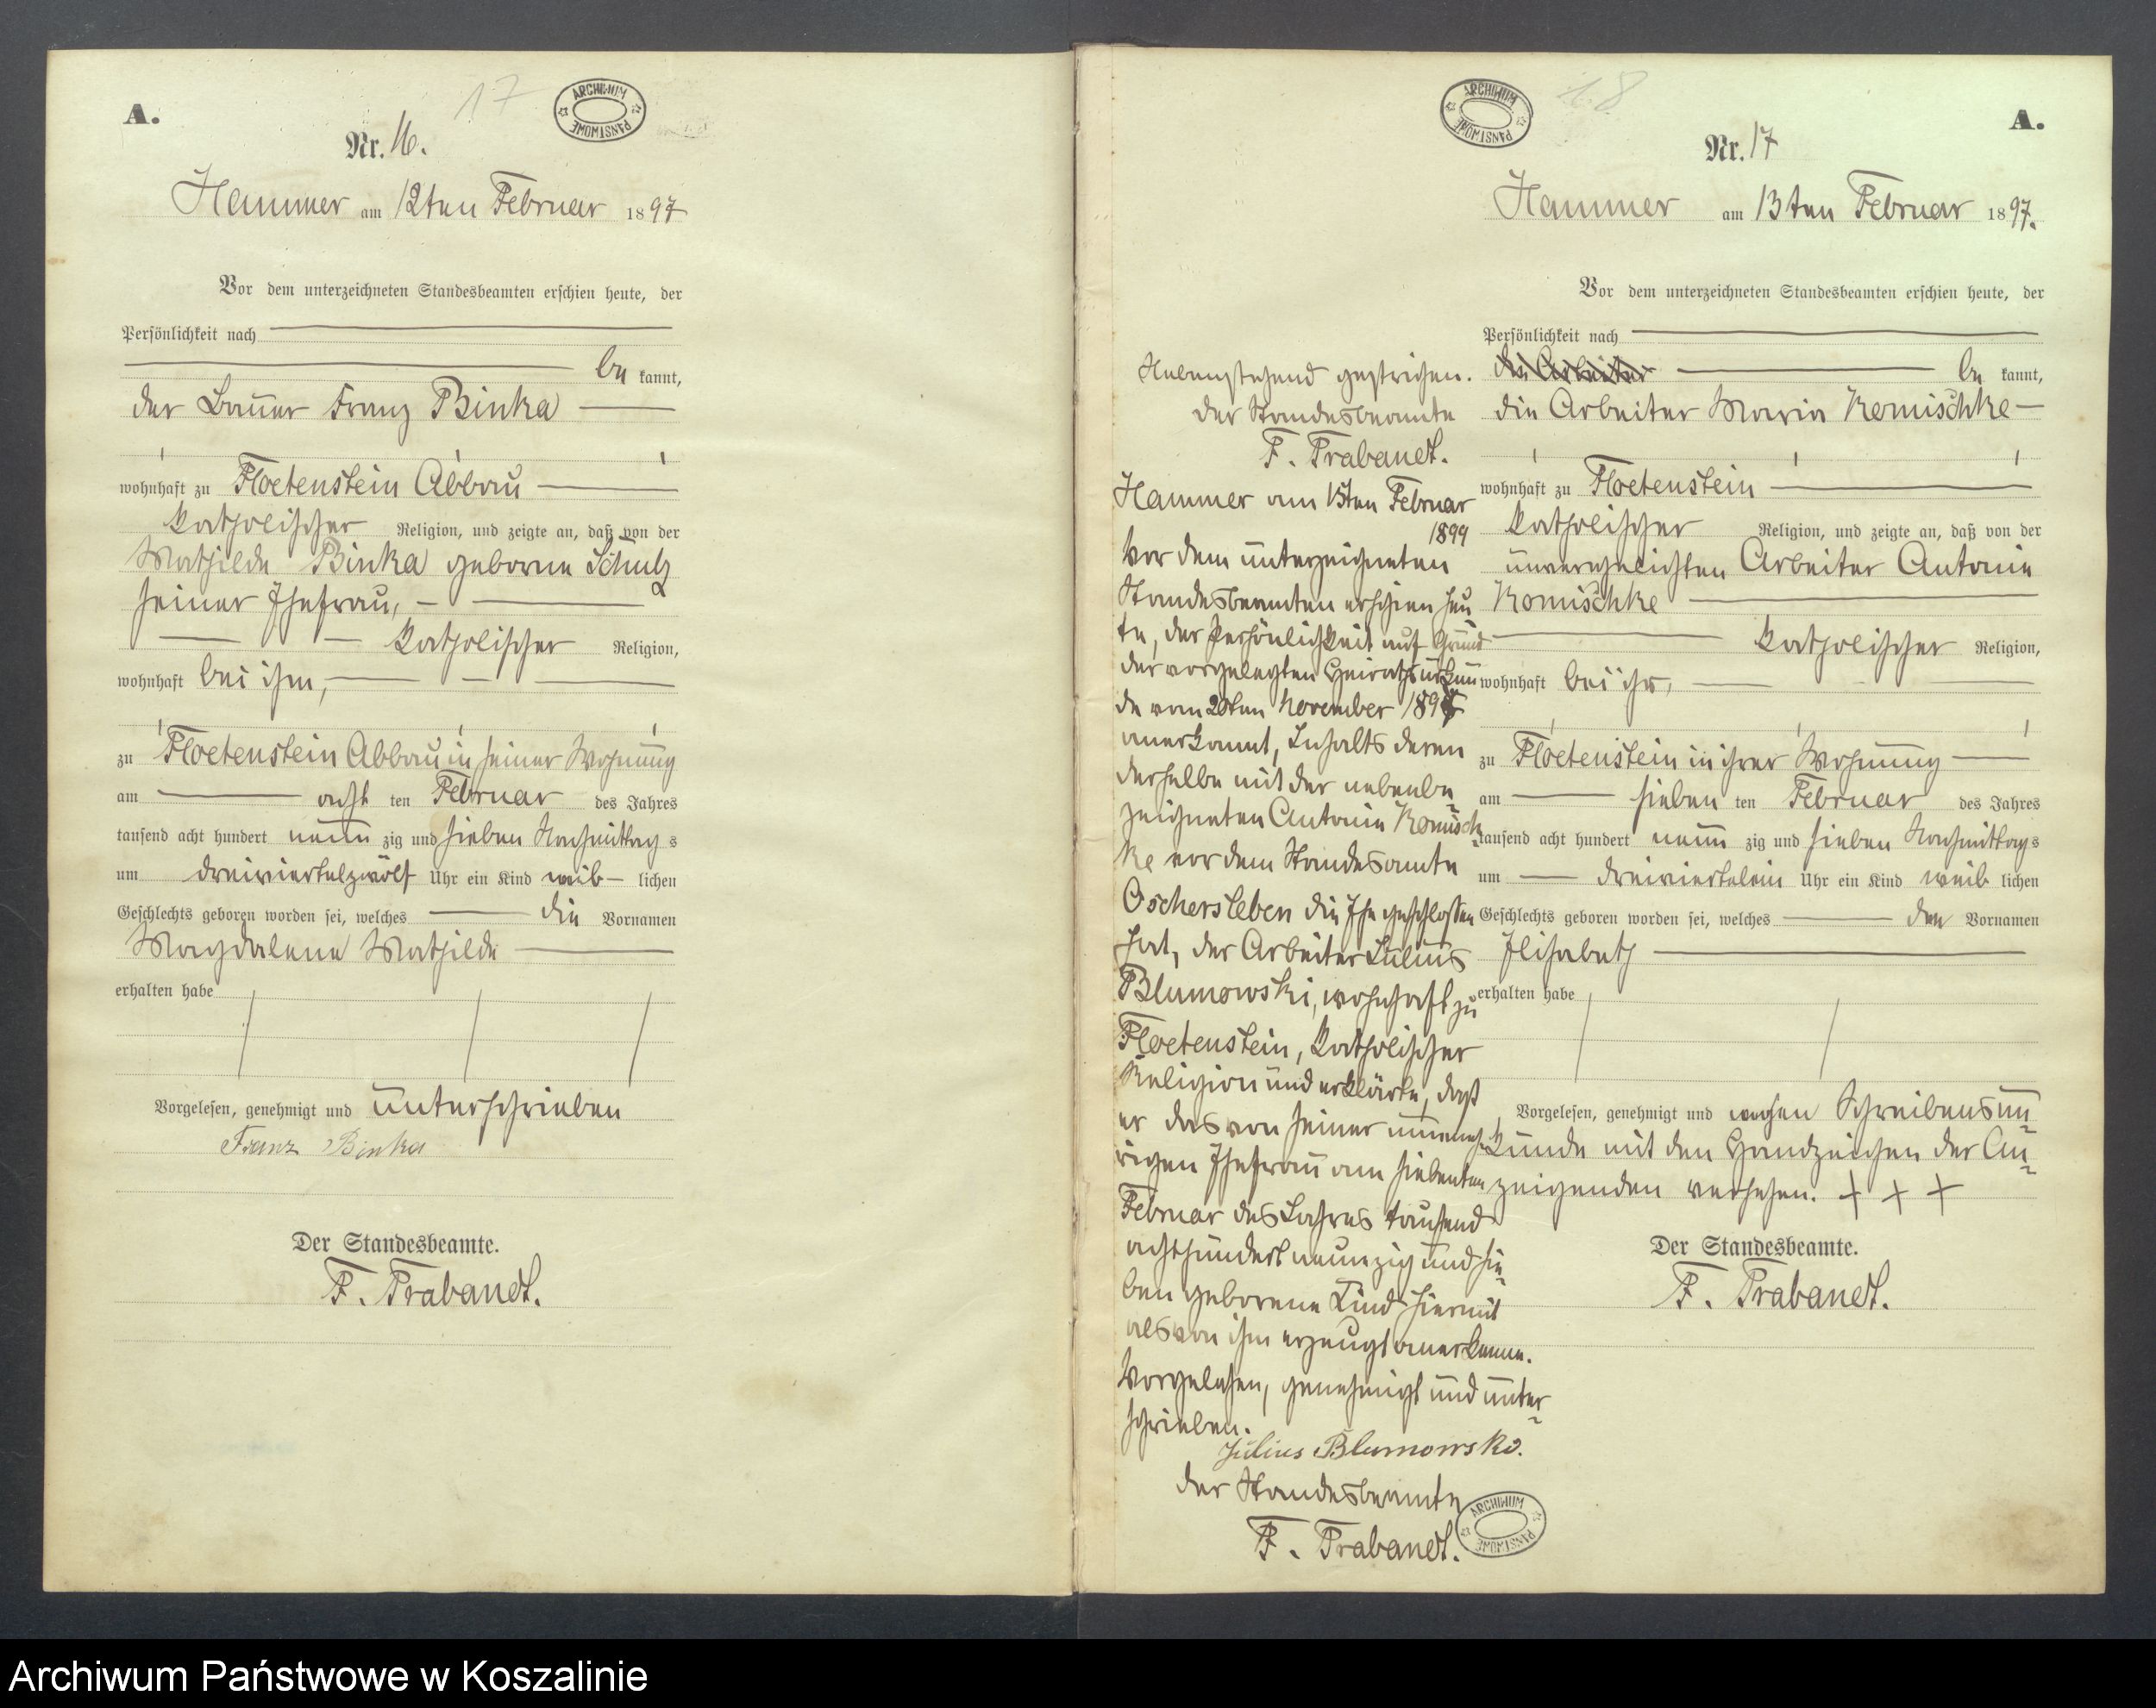 17
ARCHIWUM PAŃSTWOWE
A.
Nr. 16.
Hammer am 12ten Februar 1897
Vor dem unterzeichneten Standesbeamten erschien heute, der
Persönlichkeit nach
be kannt,
der Bauer Franz Binka
wohnhaft zu Floetenstein Abbau
katholischer Religion, und zeigte an, daß von der
Mathilde Binka geborne Schulz
seiner Ehefrau,
katholischer Religion,
wohnhaft bei ihm,
zu Floetenstein Abbau in seiner Wohnung
am acht ten Februar des Jahres
tausend acht hundert neun zig und sieben Nachmittag s
um dreiviertelzwölf Uhr ein Kind weib lichen
Geschlechts geboren worden sei, welches die Vornamen
Magdalene Mathilde
erhalten habe
Vorgelesen, genehmigt und unterschrieben
Franz Binka
Der Standesbeamte.
F. Trabandt.
ARCHIWUM PAŃSTWOWE
18
A.
Nr. 17
Hammer am 13ten Februar 1897.
Vor dem unterzeichneten Standesbeamten erschien heute, der
Persönlichkeit nach
der Arbeiter be kannt,
die Arbeiter Maria Komischke
wohnhaft zu Floetenstein
katholischer Religion, und zeigte an, daß von der
unverehelichten Arbeiter Antonie
Komischke
katholischer Religion,
wohnhaft bei ihr,
zu Floetenstein in ihrer Wohnung
am sieben ten Februar des Jahres
tausend acht hundert neun zig und sieben Nachmittags
um dreiviertelein Uhr ein Kind weib lichen
Geschlechts geboren worden sei, welches den Vornamen
Elisabeth
erhalten habe
Vorgelesen, genehmigt und wegen Schreibensun-
kunde mit den Handzeichen der An-
zeigenden versehen. + + +
Der Standesbeamte.
F. Trabandt.
Nebenstehend gestrichen.
Der Standesbeamte
F. Trabandt.
Hammer am 15ten Februar
1899
Vor dem unterzeichneten
Standesbeamten erschien heu
te, der Persönlichkeit auf Grund
der vorgelegten Heiratsurkun
de vom 20ten November 189
anerkannt, Inhalts deren
derselbe mit der nebenbe-
zeichneten Antonie Komisch-
ke vor dem Standesamte
Oschersleben die Ehe geschlossen
hat, der Arbeiter Julius
Blumowski, wohnhaft zu
Floetenstein, katholischer
Religion und erklärte, daß
er das von seiner nunmeh-
rigen Ehefrau am siebenten
Februar des Jahres tausend
achthundert neunzig und sie-
ben geborene Kind hiermit
als von ihm erzeugt anerkenne.
Vorgelesen, genehmigt und unter-
schrieben.
Julius Blumowski.
Der Standesbeamte
F. Trabandt.
ARCHIWUM PAŃSTWOWE
Archiwum Państwowe w Koszalinie